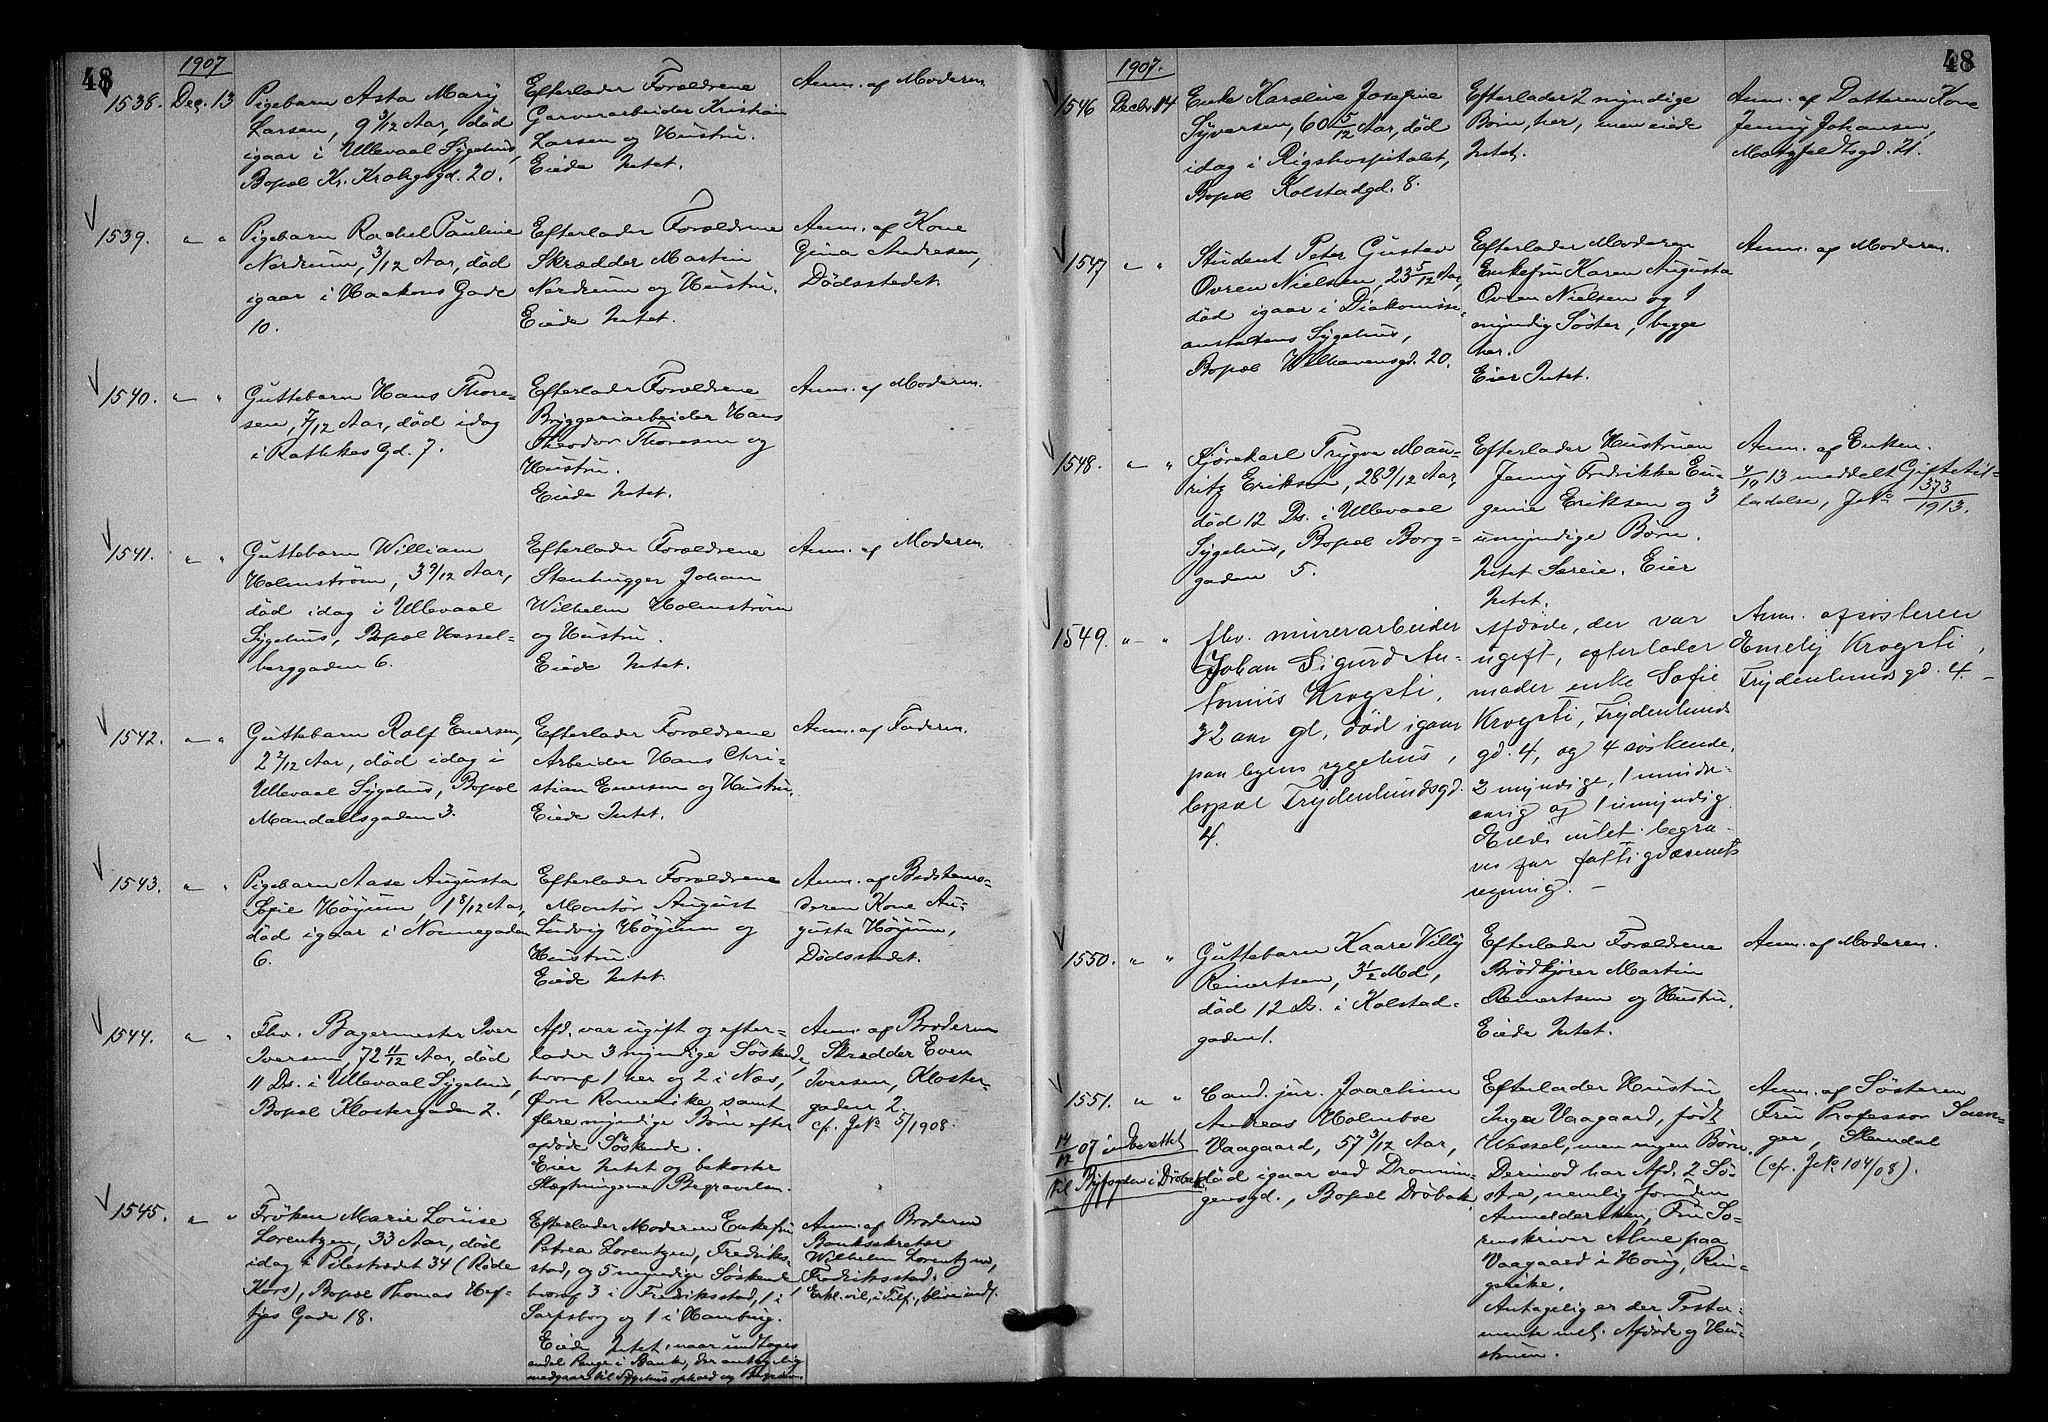 48
1907
1538. Dec. 13
Pigebarn Asta Mary
Larsen, 9 3/12 Aar, død
igaar i Ullevaal Sygehus,
Bopæl Kr. Krohgsgd. 20.
Efterlader Forældrene
Garverarbeider Kristian
Larsen og Hustru.
Eiede Intet.
Anm. af Moderen.
1539. " "
Pigebarn Rachel Pauline
Nordrum, 3/12 Aar, død
igaar i Haakons Gade
10.
Efterlader Forældrene
Skrædder Martin
Nordrum og Hustru.
Eiede Intet.
Anm. af Kone
Gina Andresen,
Dødsstedet.
1540. " "
Guttebarn Hans Thore-
sen, 7/12 Aar, død idag
i Rathkes Gd. 7.
Efterlader Forældrene
Bryggeriarbeider Hans
Theodor Thoresen og
Hustru.
Eiede Intet.
Anm. af Moderen.
1541. " "
Guttebarn William
Holmstrøm, 3 9/12 Aar,
død idag i Ullevaal
Sygehus, Bopæl Hessel-
berggaden 6.
Efterlader Forældrene
Stenhugger Johan
Wilhelm Holmstrøm
og Hustru.
Eiede Intet.
Anm. af Moderen.
1542. " "
Guttebarn Rolf Enersen,
2 2/12 Aar, død idag i
Ullevaal Sygehus, Bopæl
Mandallsgaden 3.
Efterlader Forældrene
Arbeider Hans Chri-
stian Enersen og Hustru.
Eiede Intet.
Anm. af Faderen.
1543. " "
Pigebarn Aase Augusta
Sofie Høyum, 1 8/12 Aar,
død igaar i Nonnegaden
6.
Efterlader Forældrene
Montør August
Ludvig Høyum og
Hustru.
Eiede Intet.
Anm. af Bedstemo-
deren Kone Au-
gusta Høyum,
Dødsstedet.
1544. " "
Fhv. Bagermester Iver
Iversen, 72 11/12 Aar, død
11 Ds. i Ullevaal Sygehus,
Bopæl Klostergaden 2.
Afd. var ugift og efter-
lader 3 myndige Søskende,
hvoraf 1 her og 2 i Næs,
Øvre Romerike samt
flere myndige Børn efter
afdøde Søskende.
Eier Intet og bekoster
Slægtningene Begravelsen.
Anm. af Broderen
Skrædder Even
Iversen, Kloster-
gaden 2.
cf. J No 5/1908.
1545. " "
Frøken Marie Louise
Lorentzen, 33 Aar, død
idag i Pilestrædet 34 (Røde
Kors), Bopæl Thomas Hef-
tyes Gade 18.
Efterlader Moderen Enkefru
Petrea Lorentzen, Fredriks-
stad, og 5 myndige Søskende
hvoraf 3 i Fredriksstad, 1 i
Sarpsborg og 1 i Hamburg.
Eiede Intet, naar undtages
endel Penge i Bank, der antagelig
medgaar til Sygehusophold og Begravelse.
Anm. af Broderen
Banksekretær
Wilhelm Lorentzen,
Fredriksstad.
Erkl. vil, i Tilf., blive indf.
48
1907.
1546 Decbr. 14
Enke Karoline Josefine
Syversen, 60 5/12 Aar, død
idag i Rigshospitalet,
Bopæl Kolstadgd. 8.
Efterlader 2 myndige
Børn, her, men eiede
Intet.
Anm. af Datteren Kone
Jenny Johansen,
Motzfeldtsgd. 21.
1547 " "
Student Peter Gustav
Ovren Nielsen, 23 5/12 Aar,
død igaar i Diakonisse-
anstaltens Sygehus,
Bopæl Welhavensgd. 20.
Efterlader Moderen
Enkefru Karen Augusta
Ovren Nielsen og 1
myndig Søster, begge
her.
Eier Intet.
Anm. af Moderen.
1548. " "
Kjørekarl Trygve Mau-
ritz Eriksen, 28 9/12 Aar,
død 12 Ds. i Ullevaal
Sygehus, Bopæl Borg-
gaden 5.
Efterlader Hustruen
Jenny Fredrikke Eu-
genie Eriksen og 3
umyndige Børn.
Intet Særeie. Eier
Intet.
Anm. af Enken.
4/10 13 meddelt Giftetil-
ladelse, J No 373/1913.
1549. " "
fhv. murerarbeider
Johan Sigurd An-
tonius Krogsti,
32 aar gl, død igaar
paa byens sygehus,
bopæl Frydenlundsgd.
4.
Afdøde, der var
ugift, efterlader
moder enke Sofie
Krogsti, Frydenlunds
gd. 4, og 4 søskende,
2 myndige, 1 mindre-
aarig og 1 umyndig
Eiede intet. begra-
ves for fattigvæsenets
regning. –
Anm. af søsteren
Emely Krogsti,
Frydenlundsgd. 4. –
1550. " "
Guttebarn Kaare Villy
Reinertsen, 3 1/2 Md,
død 12 Ds. i Kolstad-
gaden 1.
Efterlader Forældrene
Brødkjører Martin
Reinertsen og Hustru,
Eiede Intet.
Anm. af Moderen.
1551. " "
14/12 07 indberettet
til Byfogden i Drøbak.
Cand. jur. Joachim
Andreas Holmboe
Vaagaard, 57 3/12 Aar,
død igaar ved Dronnin-
gensgd., Bopæl Drøbak.
Efterlader Hustru
Inger Vaagaard, født
Wessel, men ingen Børn.
Derimod har Afd. 2 Sø-
stre, nemlig foruden
Anmeldersken, Fru So-
renskriver Aline paa
Vaagaard i Hønig, Rin-
gerike.
Antagelig er der Testa-
mente mel. Afdøde og Hu-
struen.
Anm. af Søsteren
Fru Professor Sæn-
ger, Slemdal
(cfr. J No 104/08).